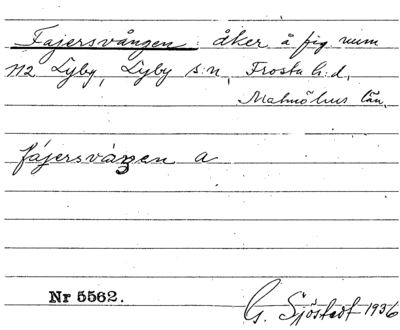 Fajersvången: åker å fig. num
112 Lyby, Lyby s:n, Frosta h:d,
Malmöhus län.
fájersváŋen a
Nr 5562.
G. Sjöstedt 1936